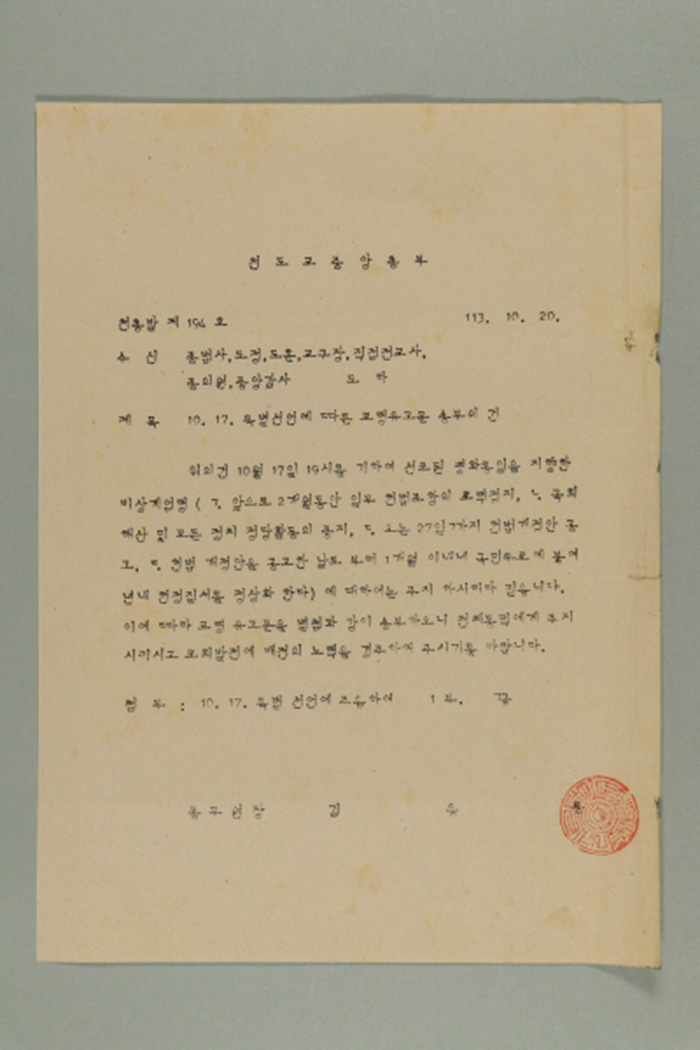 천 도 교 중 앙 총 부
천총발 제 194 호 113. 10. 20.
수 신 종법사,도정,도훈,교구장,직접전교사,
종의원,중앙감사 도 하
제 목 10. 17. 특별선언에 따른 교령유고문 송부의 건
위의건 10월 17일 19시를 기하여 선포된 평화통일을 지향한
비상계엄령 ( ㄱ. 앞으로 2개월동안 일부 헌법조항의 효력정지, ㄴ. 국회
해산 및 모든 정치 정당활동의 중지, ㄷ. 오는 27일까지 헌법개정안 공
고, ㄹ. 헌법 개정안을 공고한 날로 부터 1개월 이내에 국민투표에 붙여
년내 헌정질서를 정상화 한다) 에 대하여는 주지 하시리라 믿습니다.
이에 따라 교령 유고문을 별첨과 같이 송부하오니 전체동덕에게 주지
시키시고 교회발전에 배전의 노력을 경주하여 주시기를 바랍니다.
첨 부 : 10. 17. 특별 선언에 즈음하여 1 부. 끝
종무원장 김